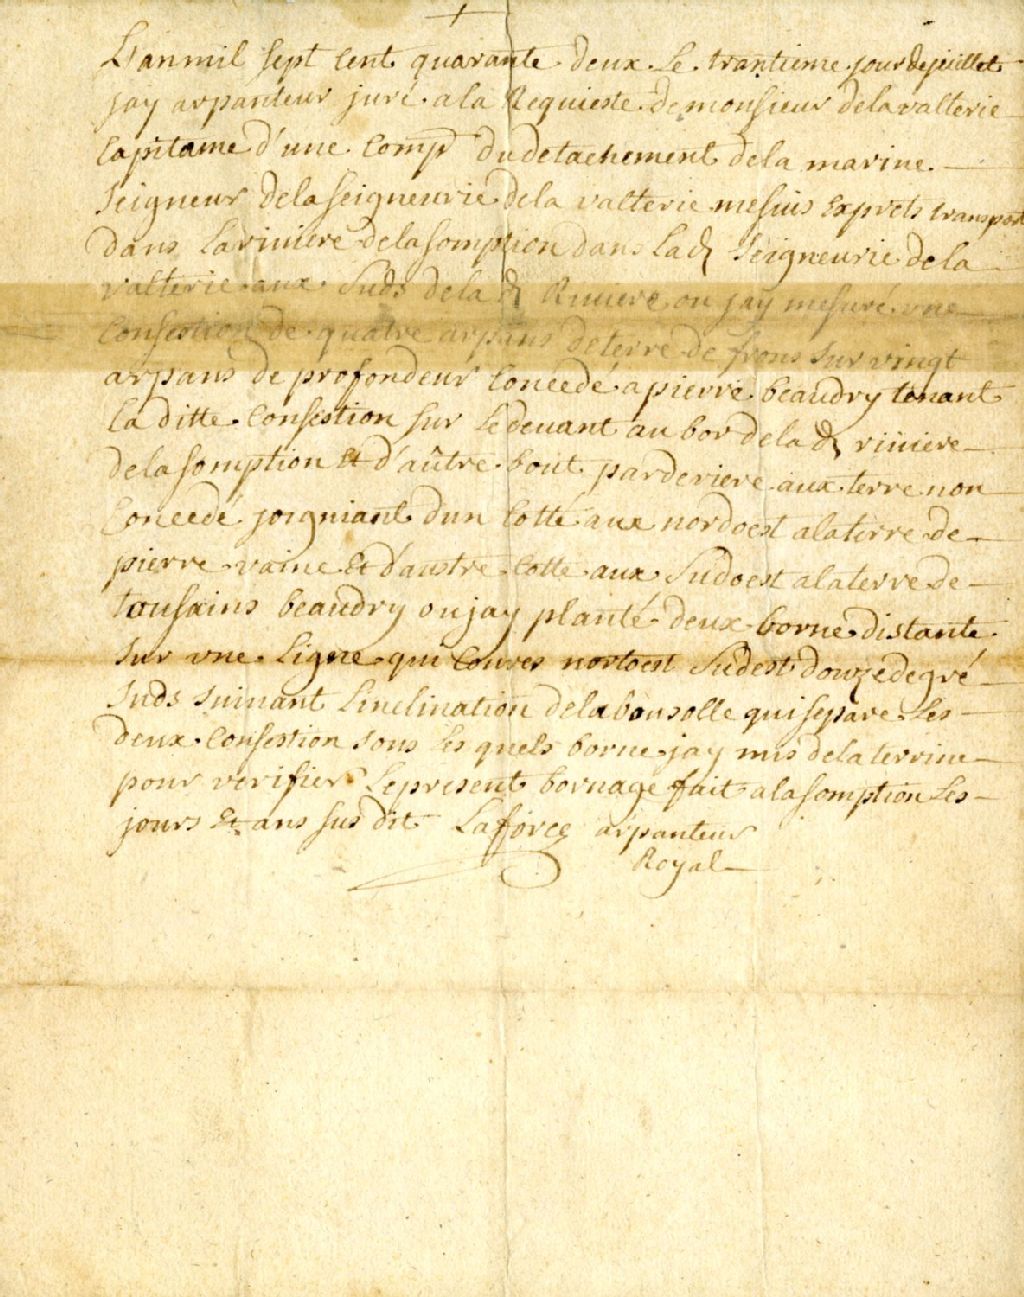 L'an mil sept cent quarante deux le trantieme jour de juillet
jay arpanteur juré a la Requieste de monsieur de lavalterie
Capitaine d'une Comp du detachement de la marine
Seigneur de la seigneurie de la valterie mesuis exprets transporté
dans la riviere de la somption dans lad Seigneurie de la
valterie aux suds de la d Riviere ou jay mesuré une
Consestion de quatre arpans de terre de frons sur vingt
arpans de profondeur Concedé a pierre beaudry tenant
la ditte Consestion sur le devant au bor de la d riviere
de la somption Et d'aûtre bout par deriere aux terre non
Concedé joigniant dun Cotté aux nordoest a la terre de
pierre vaine Et d'austre Cotte aux Sudoest a la terre de
tousains beaudry ou jay planté deux borne distante
sur une ligne qui Coures nordoest sudest douze degré
suds suivant l'inclination de la bousolle qui separe les
deux Consestion sous les quels borne jay mis de la terrine
pour verifier le present bornage fait a la somption les
jours Et ans sus dit Laforce arpanteur
Royal